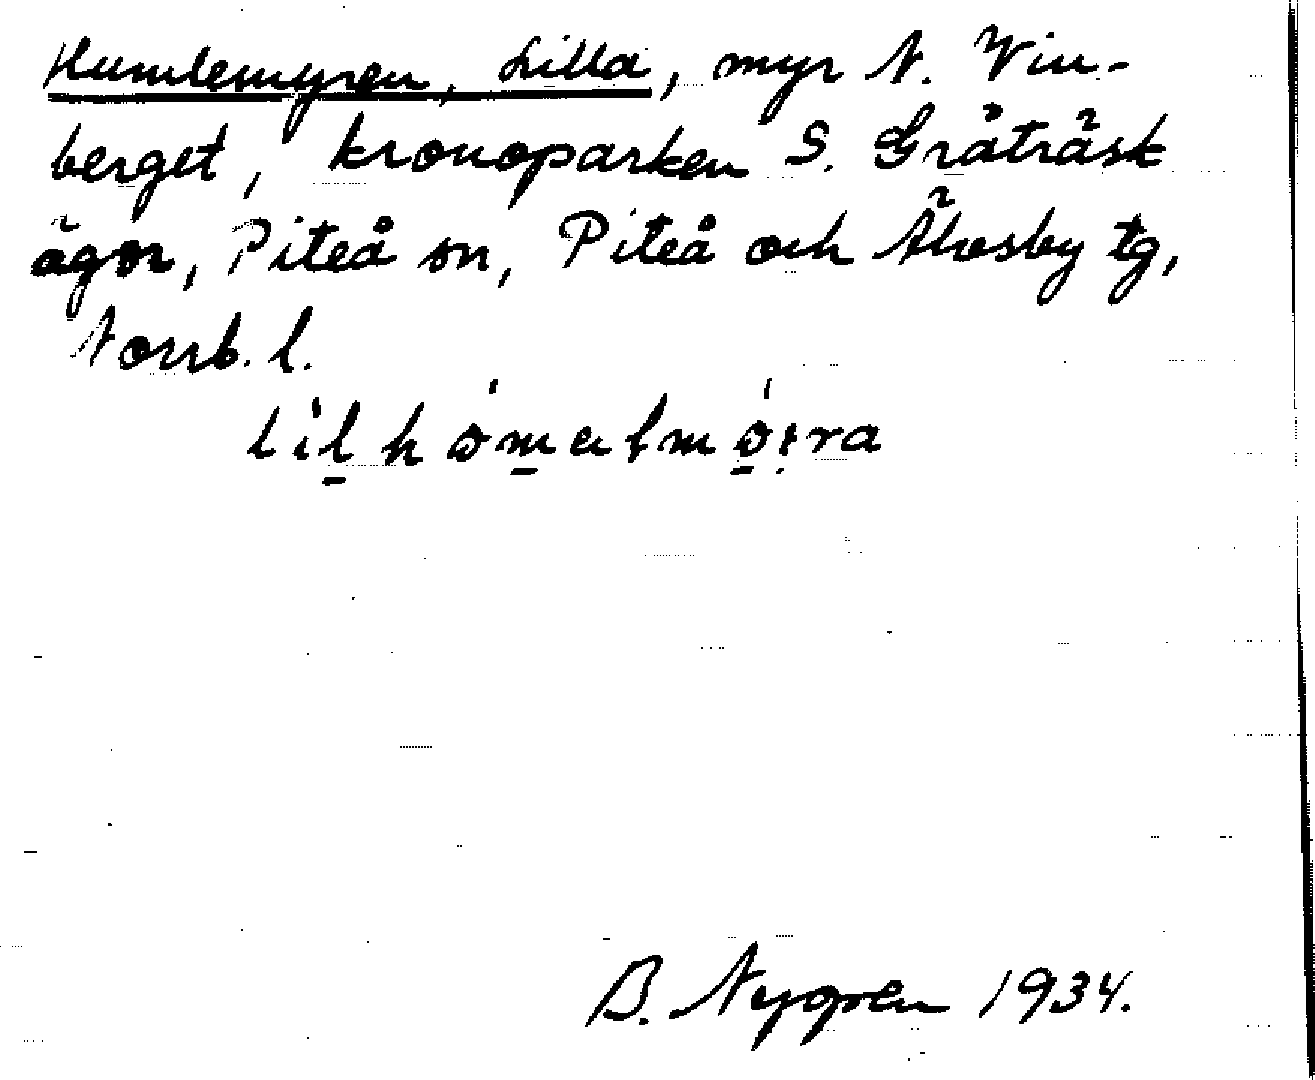 Humlemyren, Lilla, myr N. Vin-
berget, kronoparken S. Gråträsk
ägor, Piteå sn, Piteå och Älvsby tg,
Norrb. l.
B. Nygren 1934.